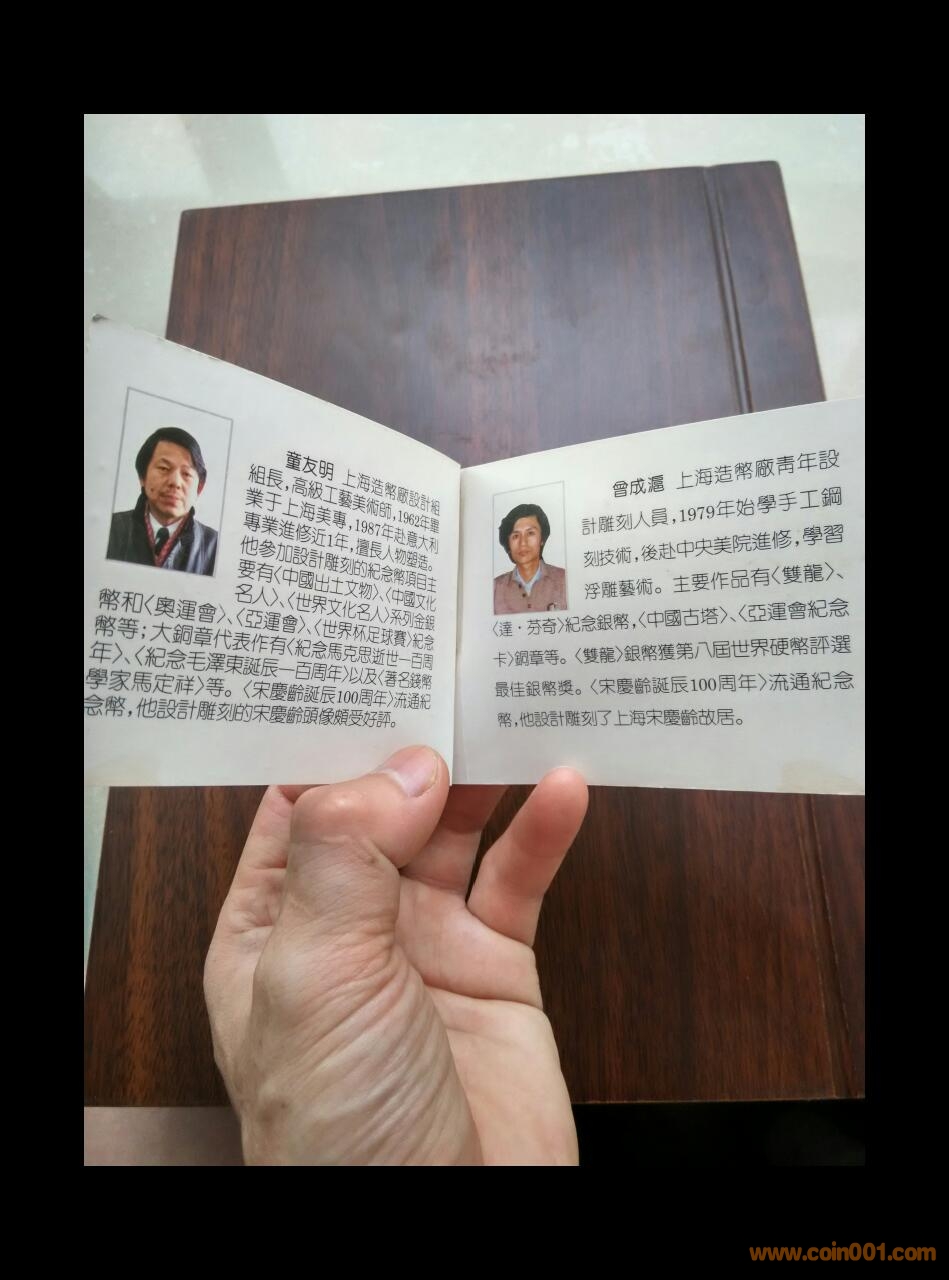 童友明 上海造幣廠設計組
組長，高級工藝美術師，1962年畢
業于上海美專，1987年赴意大利
專業進修近1年，擅長人物塑造。
他參加設計雕刻的紀念幣項目主
要有〈中國出土文物〉、〈中國文化
名人〉、〈世界文化名人〉系列金銀
幣和〈奧運會〉、〈亞運會〉、〈世界杯足球賽〉紀念
幣等；大銅章代表作有〈紀念馬克思逝世一百周
年〉、〈紀念毛澤東誕辰一百周年〉以及〈著名錢幣
學家馬定祥〉等。〈宋慶齡誕辰100周年〉流通紀
念幣，他設計雕刻的宋慶齡頭像頗受好評。
曾成滬 上海造幣廠靑年設
計雕刻人員，1979年始學手工鋼
刻技術，後赴中央美院進修，學習
浮雕藝術。主要作品有〈雙龍〉、
〈達·芬奇〉紀念銀幣，〈中國古塔〉、〈亞運會紀念
卡〉銅章等。〈雙龍〉銀幣獲第八屆世界硬幣評選
最佳銀幣獎。〈宋慶齡誕辰100周年〉流通紀念
幣，他設計雕刻了上海宋慶齡故居。
www.coin001.com